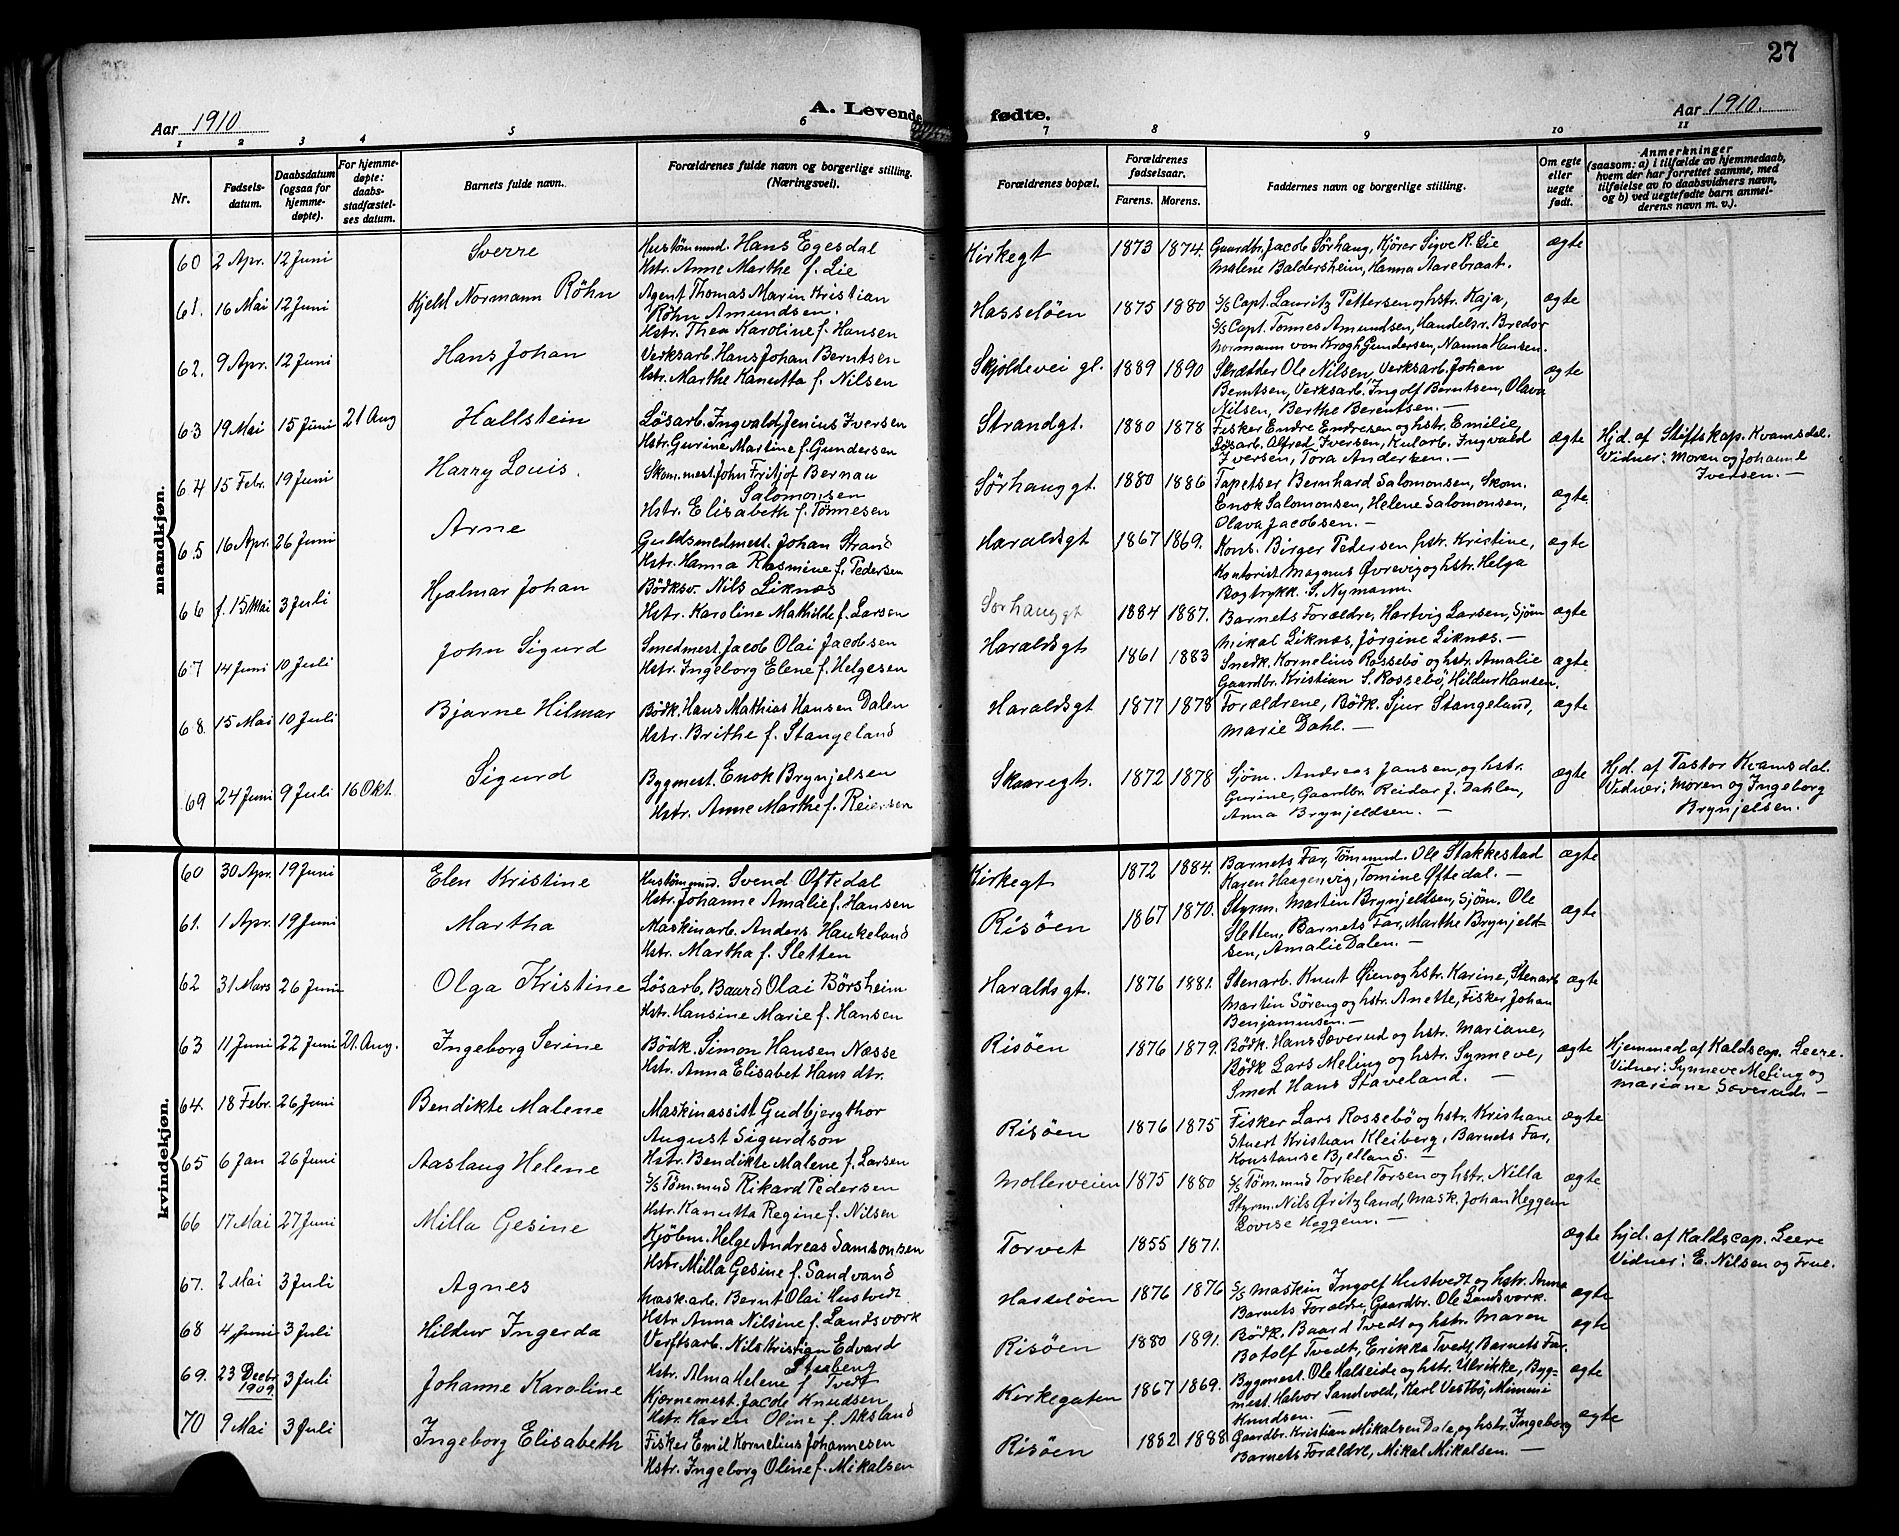 27
Aar 1910
A. Levende fødte.
Aar 1910.
1 2 3 4 5 6 7 8 9 10 11
Nr.
Fødsels-
datum.
Daabsdatum
(ogsaa for
hjemme-
døpte).
For hjemme-
døpte:
daabs-
stadfæstel-
ses datum.
Barnets fulde navn.
Forældrenes fulde navn og borgerlige stilling.
(Næringsvei).
Forældrenes bopæl.
Forældrenes
fødselsaar.
Farens. Morens.
Faddernes navn og borgerlige stilling.
Om egte
eller
uegte
født.
Anmerkninger
(saasom: a) i tilfælde av hjemmedaab,
hvem der har forrettet samme, med
tilføielse av to daabsvidners navn,
og b) ved uegtefødte barn anmel-
derens navn m. v.).
mandkjøn.
60 2 Apr. 12 Juni Sverre Hustømmd. Hans Egesdal Kirkegt 1873 1874. Gaardbr. Jacob Sørhaug, Kjører Sigve R. Lie ægte
Hstr. Anne Marthe f. Lie Malene Baldersheim, Hanna Aarebraat.
61. 16 Mai 12 Juni Kjeld Normann Röhn Agent Thomas Marin Kristian Hasseløen 1875 1880 S/S Capt. Lauritz Pettersen og hstr. Kaja, ægte
Röhn Amundsen. S/S Capt. Tønnes Amundsen, Handelsr. Bredor
Hstr. Thea Karoline f. Hansen Normann von Krogh Gundersen, Nanna Hansen.
62. 9 Apr. 12 Juni Hans Johan Verksarb. Hans Johan Berntsen Skjoldevei gl. 1889 1890 Skrædder Ole Nilsen, Verksarb. Johan ægte
Hstr. Marthe Kanutta f. Nilsen Berntsen, Verksarb. Ingolf Berntsen, Olava
Nilsen, Berthe Berentsen. —
63 19 Mai 15 Juni 21 Aug Hallstein Løsarb. Ingvald Jenius Iversen Strandgt. 1880 1878 Fisker Endre Endresen og hstr. Emilie, ægte Hjd. af Stiftskap. Kvamsdal.
Hstr. Gurine Martine f. Gundersen Løsarb. Alfred Iversen, Kularb. Ingvald Vidner: Moren og Johanne
Iversen, Tora Andersen. — Iversen. —
64 15 Febr. 19 Juni Harry Louis. Skom. mest. John Fritjof Bernau Sørhauggt. 1880 1886 Tapetser Bernhard Salomonsen, Skom. ægte
Salomonsen Enok Salomonsen, Helene Salomonsen,
Hstr. Elisabeth f. Tønnesen Olava Jacobsen. —
65 16 Apr. 26 Juni Arne Guldsmedmest. Johan Strand Haraldsgt 1867 1869. Kons. Birger Pedersen hstr. Kristine, ægte
Hstr. Hanna Rasmine f. Pedersen Kontorist Magnus Øvrevig og hstr. Helga
Bogtrykk. S. Nymann.
66 f. 15 Mai 3 Juli Hjalmar Johan Bødksv. Nils Liknæs Sørhauggt 1884 1887. Barnets Forældre, Hartvig Larsen, Sjøm ægte
Hstr. Karoline Mathilde f. Larsen Mikal Liknæs, Jørgine Liknæs. —
67 14 Juni 10 Juli John Sigurd Smedmest. Jacob Olai Jacobsen Haraldsgt 1861 1883 Snedk. Kornelius Rossebø og hstr. Amalie ægte
Hstr. Ingeborg Elene f. Helgesen Gaardbr. Kristian S. Rossebø, Hildur Hansen.
68. 15 Mai 10 Juli Bjarne Hilmar Bødk. Hans Mathias Hansen Dalen Haraldsgt 1877 1878 Forældrene, Bødk. Sjur Stangeland, ægte
Hstr. Brithe f. Stangeland Marie Dahl. —
69 24 Juni 9 Juli 16 Okt. Sigurd Bygmest. Enok Brynjelsen Skaaregt. 1872 1878 Sjøm. Andreas Jansen, og hstr. ægte Hjd. af Pastor Kvamsdal.
Hstr. Anne Marthe f. Reiersen Gurine, Gaardbr. Reidar J. Dahlen, Vidner: Moren og Ingeborg
Anna Brynjeldsen. — Brynjelsen.
kvindekjøn.
60 30 Apr. 19 Juni Elen Kristine Hustømmd. Svend Oftedal Kirkegt 1872 1884. Barnets Far, Tømmd. Ole Stakkestad ægte
Hstr. Johanne Amalie f. Hansen Karen Haagenvig, Tomine Oftedal. —
61. 1 Apr. 19 Juni Martha Maskinarb. Anders Haukeland Risøen 1867 1870. Styrm. Martin Brynjeldsen, Sjøm. Ole ægte
Hstr. Martha f. Sletten Sletten, Barnets Far, Marthe Brynjeld-
sen, Amalie Dalen. —
62 31 Mars 26 Juni Olga Kristine Løsarb. Baard Olai Børsheim Haraldsgt. 1876 1881. Stenarb. Knut Øien og hstr. Karine, Stenarb ægte
Hstr. Hansine Marie f. Hansen Martin Søreng og hstr. Anette, Fisker Johan
Benjaminsen. —
63 11 Juni 22 Juni 21. Aug. Ingeborg Serine Bødk. Simon Hansen Næsse Risøen 1876 1879. Bødk. Hans Sæverud og hstr. Mariane, ægte Hjemmed af Kaldscap. Leere.
Hstr. Anna Elisabet Hansdtr. Bødk Lars Meling og hstr. Synneve, Vidner: Synneve Meling og
Smed Hans Staveland. — Mariane Sæverud. —
64. 18 Febr. 26 Juni Bendikte Malene Maskinassist Gudbjergthor Risøen 1876 1875 Fisker Lars Rossebø og hstr. Kristiane ægte
August Sigurdson Stuert Kristian Kleiberg, Barnets Far,
Hstr. Bendikte Malene f. Larsen Konstanse Bjelland. —
65 6 Jan 26 Juni Aaslaug Helene S/S Tøm. md Rikard Pedersen Mollerveien 1875 1880 S/S Tøm. md Torkel Torsen og hstr. Nilla ægte
Hstr. Kanutta Regine f. Nilsen Styrm. Nils Øritzland, Mask. Johan Heggem
Lovise Heggem. —
66 17 Mai 27 Juni Milla Gesine Kjøbm. Helge Andreas Samsonsen Torvet 1855 1871. ægte hjd. af Kaldscap. Leere
Hstr. Milla Gesine f. Sandvand Vidner: E. Nilsen og Frue.
67. 2 Mai 3 Juli Agnes Maskarb. Bernt Olai Hustvedt Hasseløen 1876 1876 S/S Maskin Ingolf Hustvedt og hstr. Anna ægte
Hstr Anna Nilsine f. Landsvork Barnets Forældre, Gaardbr. Ole Landsvork.
68 4 Juni 3 Juli Hildur Ingerda Verftsarb. Nils Kristian Edvard Risøen 1880 1891. Bødk. Baard Tvedt og hstr. Maren ægte
Staabeng Botolf Tvedt, Erikka Tvedt, Barnets Far.
Hstr. Alma Helene f. Tvedt
69. 23 Decbr 1909 3 Juli Johanne Karoline Kjørnemest. Jacob Knudsen Kirkegaten 1867 1869. Bygmest. Ole Halseide og hstr. Ulrikke, Byg- ægte
Hstr. Karen Oline f. Aksland mest. Halvor Sandvold, Karl Vestbø, Mimmi
Knudsen. —
70 9 Mai 3 Juli Ingeborg Elisabeth Fisker Emil Kornelius Johannesen Risøen 1882 1888 Gaardbr. Kristian Mikalsen Dala, og hstr. Ingeborg ægte
Hstr. Ingeborg Oline f. Mikalsen Barnets Forældre, Mikal Mikalsen. —